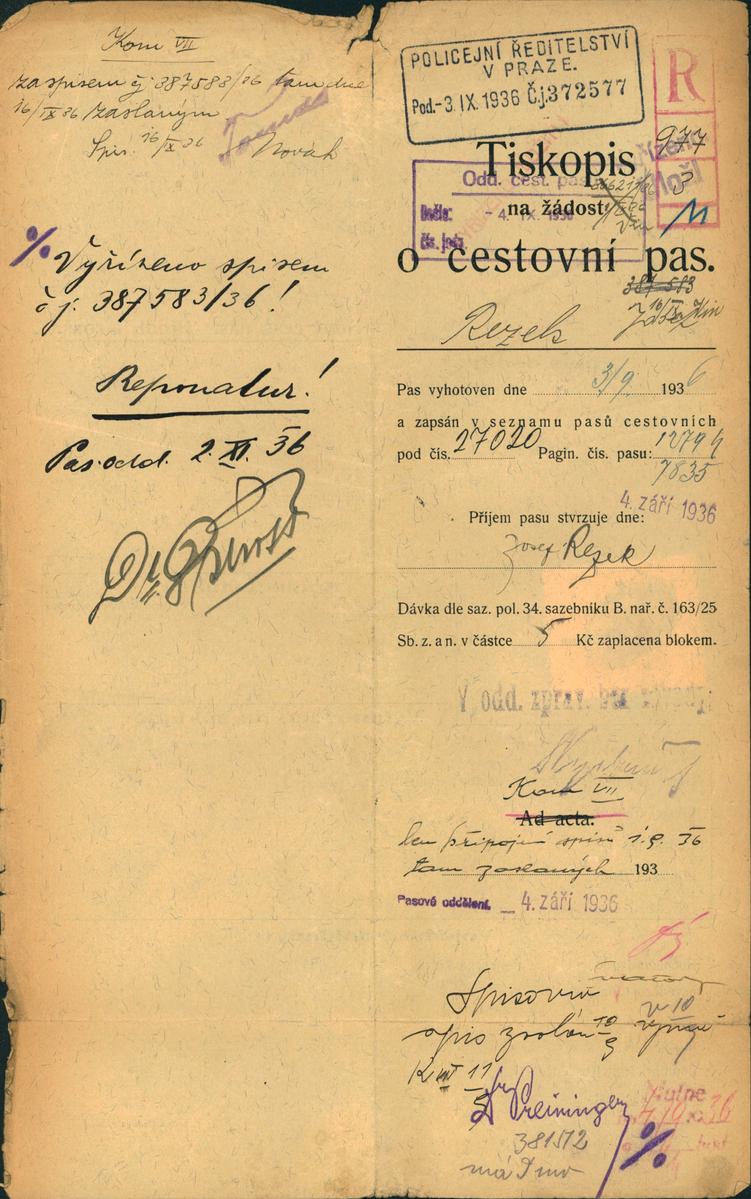 Kom VII
za spisem čj 387583/36 tam dne
16/IX 36 zaslaným
Spis. 16/X 36 Novák
% Vyřízeno spisem
č j. 387583/36!
Reponatur!
Pas. odd. 2. XI. 36
POLICEJNÍ ŘEDITELSTVÍ
V PRAZE.
Pod. -3. IX. 1936 Č.j. 372577
R
977
3
11
Tiskopis
Odd. cest. pasů
na žádost
Došlo: - 4. IX. 1936
o cestovní pas.
387 583
16/IX
Rezek
Pas vyhotoven dne 3/9 1936
a zapsán v seznamu pasů cestovních
pod čís. 27020 Pagin. čís. pasu: 12794
7835
4. září 1936
Příjem pasu stvrzuje dne:
Josef Rezek
Dávka dle saz. pol. 34. sazebníku B. nař. č. 163/25
Sb. z. a n. v částce 5 Kč zaplacena blokem.
V odd. zpráv.
Kom VII
Ad acta.
připojení spisů 1. 9. 36
tam zaslaných 193
Pasové oddělení. - 4. září 1936
Spisovna
spis
K VII 11
Dr Preininger
381572
má
%